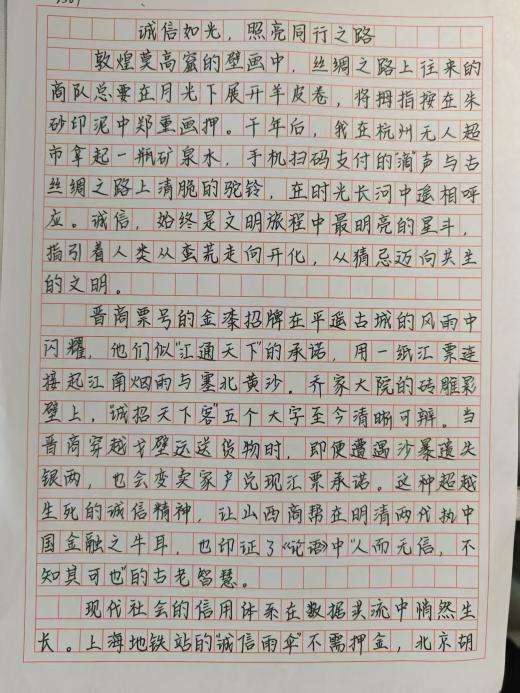 诚信如光，照亮同行之路
敦煌莫高窟的壁画中，丝绸之路上往来的
商队总要在月光下展开羊皮卷，将拇指按在朱
砂印泥中郑重画押。千年后，我在杭州无人超
市拿起一瓶矿泉水，手机扫码支付的"滴"声与古
丝绸之路上清脆的驼铃，在时光长河中遥相呼
应。诚信，始终是文明旅程中最明亮的星斗，
指引着人类从蛮荒走向开化，从猜忌迈向共生
的文明。
晋商票号的金漆招牌在平遥古城的风雨中
闪耀，他们似"汇通天下"的承诺，用一纸汇票连
接起江南烟雨与塞北黄沙。乔家大院的砖雕影
壁上，"诚招天下客"五个大字至今清晰可辨。当
晋商穿越戈壁运送货物时，即便遭遇沙暴遗失
银两，也会变卖家产兑现汇票承诺。这种超越
生死的诚信精神，让山西商帮在明清两代执中
国金融之牛耳，也印证了《论语》中"人而无信，不
知其可也"的古老智慧。
现代社会的信用体系在数据洪流中悄然生
长。上海地铁站的"诚信雨伞"不需押金，北京胡